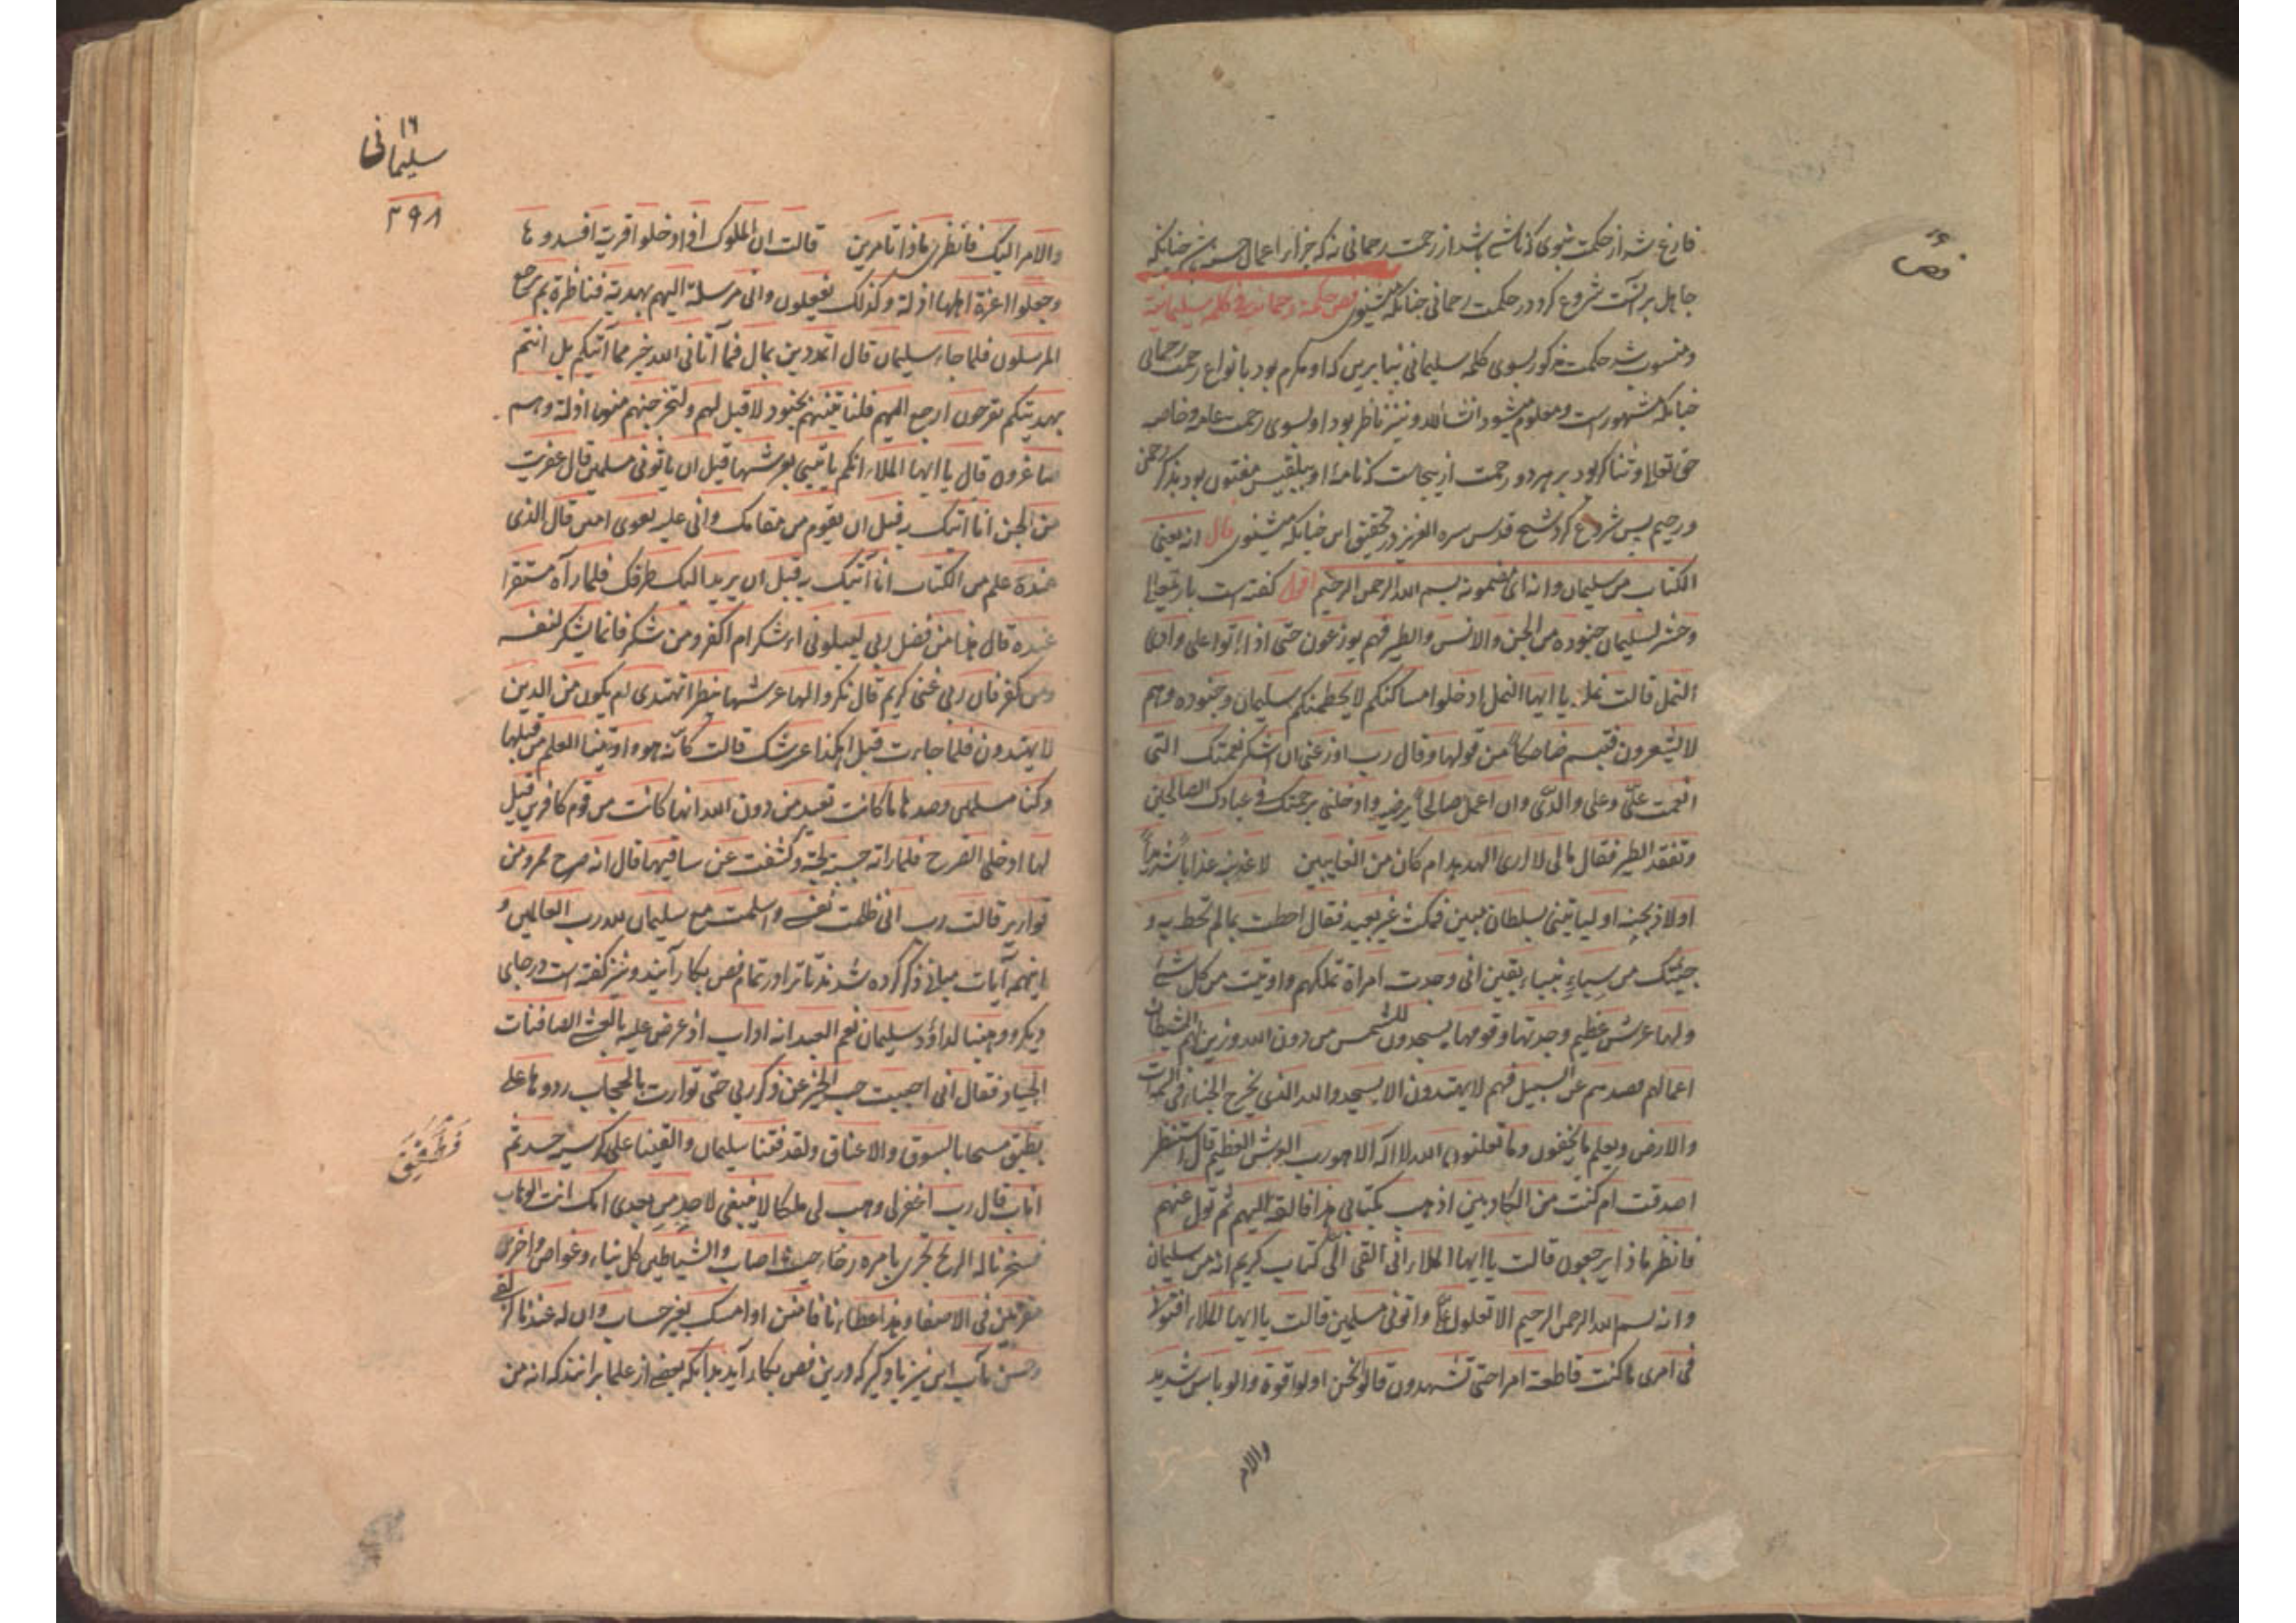 فص
فارغ شد از حکمت نبوی که ناشی باشد از رحمت رحمانی نه که جزاء اعمال حسنه چنانکه
جاهل بر آنست شروع کرد در حکمت رحمانی چنانکه میشنوی فص حکمة رحمانیة فی کلمه سلیمانیة
ومنسوب شد حکمت مذکور بسوی کلمه سلیمانی بنا برین که او مکرم بود بانواع رحمت رحمانی
چنانکه مشهور است ومعلوم میشود انشاالله ونیز ناظر بود او بسوی رحمت عامه وخاصه
حق تعالی وثناکر بود بر هر دو رحمت ازینجاست که نامهٔ او ببلقیس مفتون بود بذکر رحمن
ورحیم پس شروع کرد شیخ قدس سره العزیز در تحقیق این چنانکه میشنوی قال انه یعنی
الکتاب من سلیمان وانه ای مضمونه بسم الله الرحمن الرحیم اقول گفته است باریتعالی
وحشر لسلیمان جنوده من الجن والانس والطیر فهم یوزعون حتی اذا اتوا علی وادی
النمل قالت نملة یا ایها النمل ادخلوا مساکنکم لا یحطمنکم سلیمان وجنوده وهم
لا یشعرون فتبسم ضاحکاً من قولها وقال رب اوزعنی ان اشکر نعمتک التی
انعمت علیّ وعلی والدیّ وان اعمل صالحاً ترضیه وادخلنی برحمتک فی عبادک الصالحین
وتفقد الطیر فقال مالی لا اری الهدهد ام کان من الغایبین لاعذبنه عذاباً شدیداً
اولاذبحنه او لیاتینی بسلطان مبین فمکث غیر بعید فقال احطت بما لم تحط به و
جئتک من سباءٍ بنباءٍ یقین انی وجدت امراة تملکهم واوتیت من کل شئ
ولها عرش عظیم وجدتها وقومها یسجدون للشمس من دون الله وزین لهم الشیطان
اعمالهم فصدهم عن السبیل فهم لا یهتدون الا یسجدوا لله الذی یخرج الخباء فی السموات
والارض ویعلم ما یخفون وما تعلنون الله لا اله الا هو رب العرش العظیم قال سننظر
اصدقت ام کنت من الکاذبین اذهب بکتابی هذا فالقه الیهم ثم تول عنهم
فانظر ماذا یرجعون قالت یا ایها الملاء انی القی الیّ کتاب کریم انه من سلیمان
وانه بسم الله الرحمن الرحیم الا تعلوا علیّ واتونی مسلمین قالت یا ایها الملاء افتونی
فی امری ما کنت قاطعة امرا حتی تشهدون قالوا نحن اولوا قوة والو باس شدید
والام
١٦
سلیمانی
٣٩٨
والامر الیک فانظری ماذا تامرین قالت ان الملوک اذا دخلوا قریة افسدوها
وجعلوا اعزة اهلها اذلة وکذلک یفعلون وانی مرسلة الیهم بهدیة فناظرة بم یرجع
المرسلون فلما جاء سلیمان قال اتمدونن بمال فما آتانی الله خیر مما آتیکم بل انتم
بهدیتکم تفرحون ارجع الیهم فلناتینهم بجنود لا قبل لهم ولنخرجنهم منها اذلة وهم
صاغرون قال یا ایها الملاء ایکم یاتینی بعرشها قبل ان یاتونی مسلمین قال عفریت
من الجن انا اتیک به قبل ان یقوم من مقامک وانی علیه لقوی امین قال الذی
عنده علم من الکتاب انا آتیک به قبل ان یرید الیک طرفک فلما رآه مستقرا
عنده قال هذا من فضل ربی لیبلونی ءاشکر ام اکفر ومن شکر فانما یشکر لنفسه
ومن کفر فان ربی غنی کریم قال نکروا لها عرشها ننظر اتهتدی ام یکون من الذین
لا یهتدون فلما جاءت قیل اهکذا عرشک قالت کأنه هو واوتینا العلم من قبلها
وکنا مسلمین وصدها ما کانت تعبد من دون الله انها کانت من قوم کافرین قیل
لها ادخلی الصرح فلما راته حسبته لجة وکشفت عن ساقیها قال انه صرح ممرد من
قواریر قالت رب انی ظلمت نفسی واسلمت مع سلیمان لله رب العالمین و
اینهمه آیات مبانی ذکر کرده شدند تا ترا در تمام فص بکار آیند ونیز گفته است در جای
دیگر ووهبنا لداؤد سلیمان نعم العبد انه اواب اذ عرض علیه بالعشی الصافنات
الجیاد فقال انی احببت حب الخیر عن ذکر ربی حتی توارت بالحجاب ردوها علی
فطفق
بطفق مسحا بالسوق والاعناق ولقد فتنا سلیمان والقینا علی کرسیه جسد ثم
اناب قال رب اغفرلی وهب لی ملکا لا ینبغی لاحد من بعدی انک انت الوهاب
فسخرنا له الریح تجری بامره رخاء حیث اصاب والشیاطین کل بناء وغواص وآخرین
مقرنین فی الاصفاد هذا عطاءنا فامنن او امسک بغیر حساب وان له عندنا لزلفی
وحسن مآب این نیز یاد گیر که درین فص بکار آید بدانکه بعضی از علما برانند که انه من